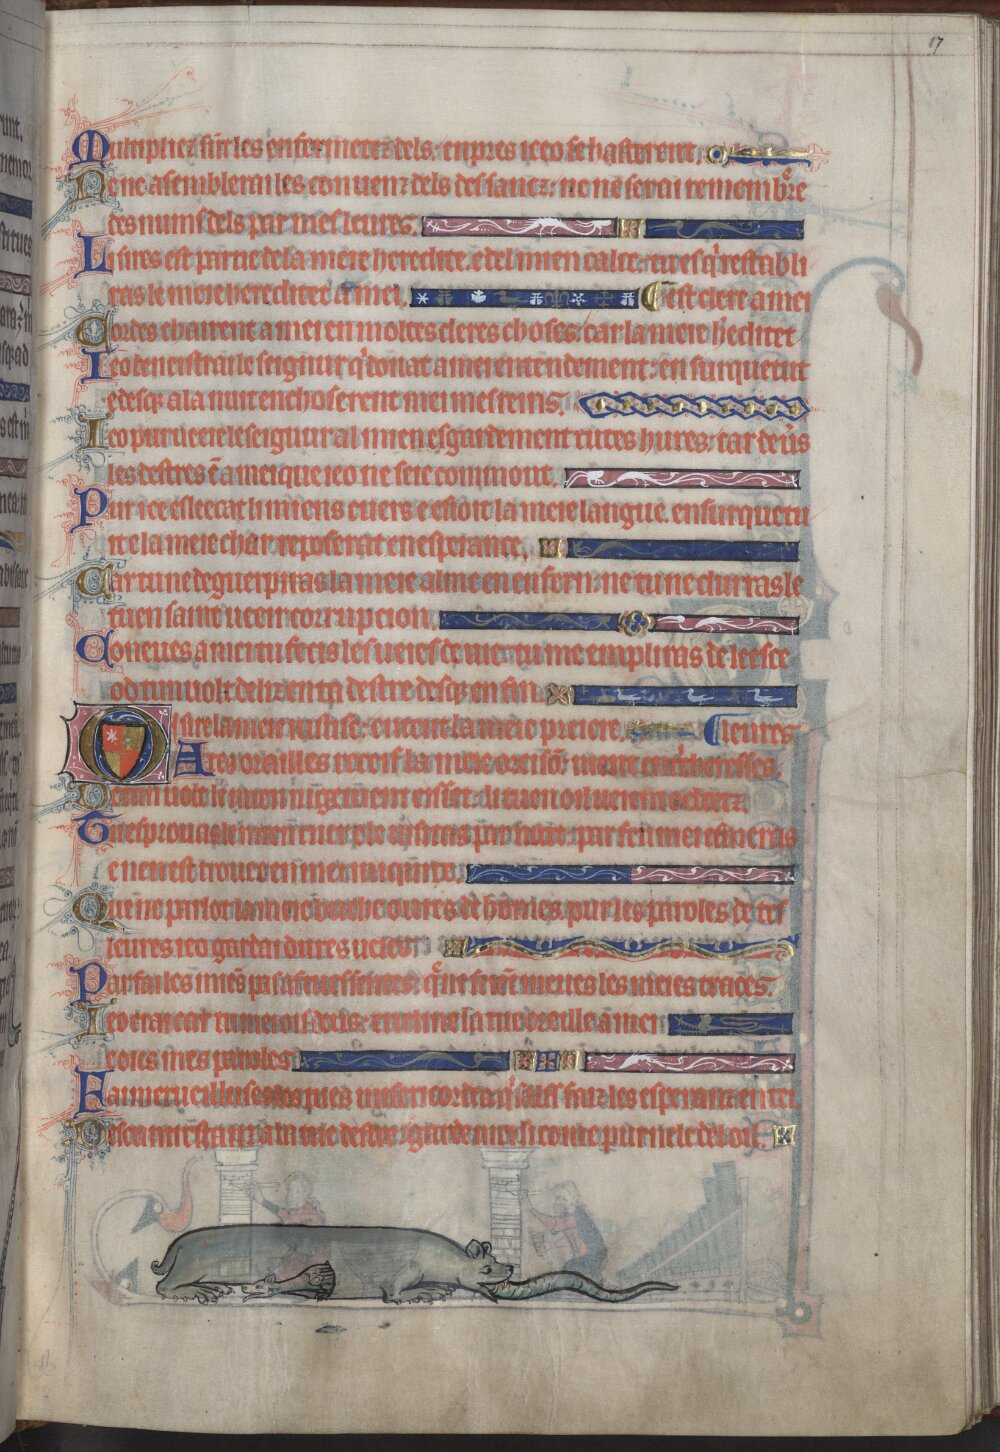 17
Multipliez sunt les enfermetez dels. enpres iceo se hasterent.
Ne ne asemblerai les couenz dels des sancz: ne ne serai remembre
des nums dels par mes leures.
Li sires est partie de la meie heredite. e del mien calice. tu ies qi restabli
ras le meie heredited a mei.
Cordes chairent a mei en moltes cleres choses: car la meie heditet
est clere a mei
Ieo beneistrai le seignur qi donat a mei entendement: en surquetut
e desque a la nuit enchoserent mei mes reins.
Ieo purueeie le seignur al mien esgardement tutes hures: car de us
les destres e a mei que ieo ne seie commout.
Pur ice esleecat li miens cuers e esioit la meie langue. ensurquetu
t e la meie char reposerat en esperance.
Car tu ne deguerpiras la meie alme en enfern: ne tu ne durras le
tuen saint ueeir corrupcion.
Coneues a mei tu fecis les ueies de uie. tu me empliras de leesce
od tun uolt. delitz en ta destre desque en fin.
Oi sire la meie iustise: entent la meie preiere.
A tes orailles receif la meie oreison: nient en tricheresses
leures
De tun uolt li mien iugement eisset. li tuen oil ueient
Tu esprouas le mien cuer e le uisitas par nuit. par feu me esmeras
e nen est trouee en mei iniquitet.
Que ne parlot la meie buche oures de homes. pur les paroles de tes
leures ieo gardai dures ueies.
Parfai les miens pas a tes sentes: que ne seient meues les meies traces.
Ieo criai car tu me ois deus: encline la tue oreille a mei
e oies mes paroles
Fai merueilluses les tues misericordes. qi salfs faiz les esperanz en tei.